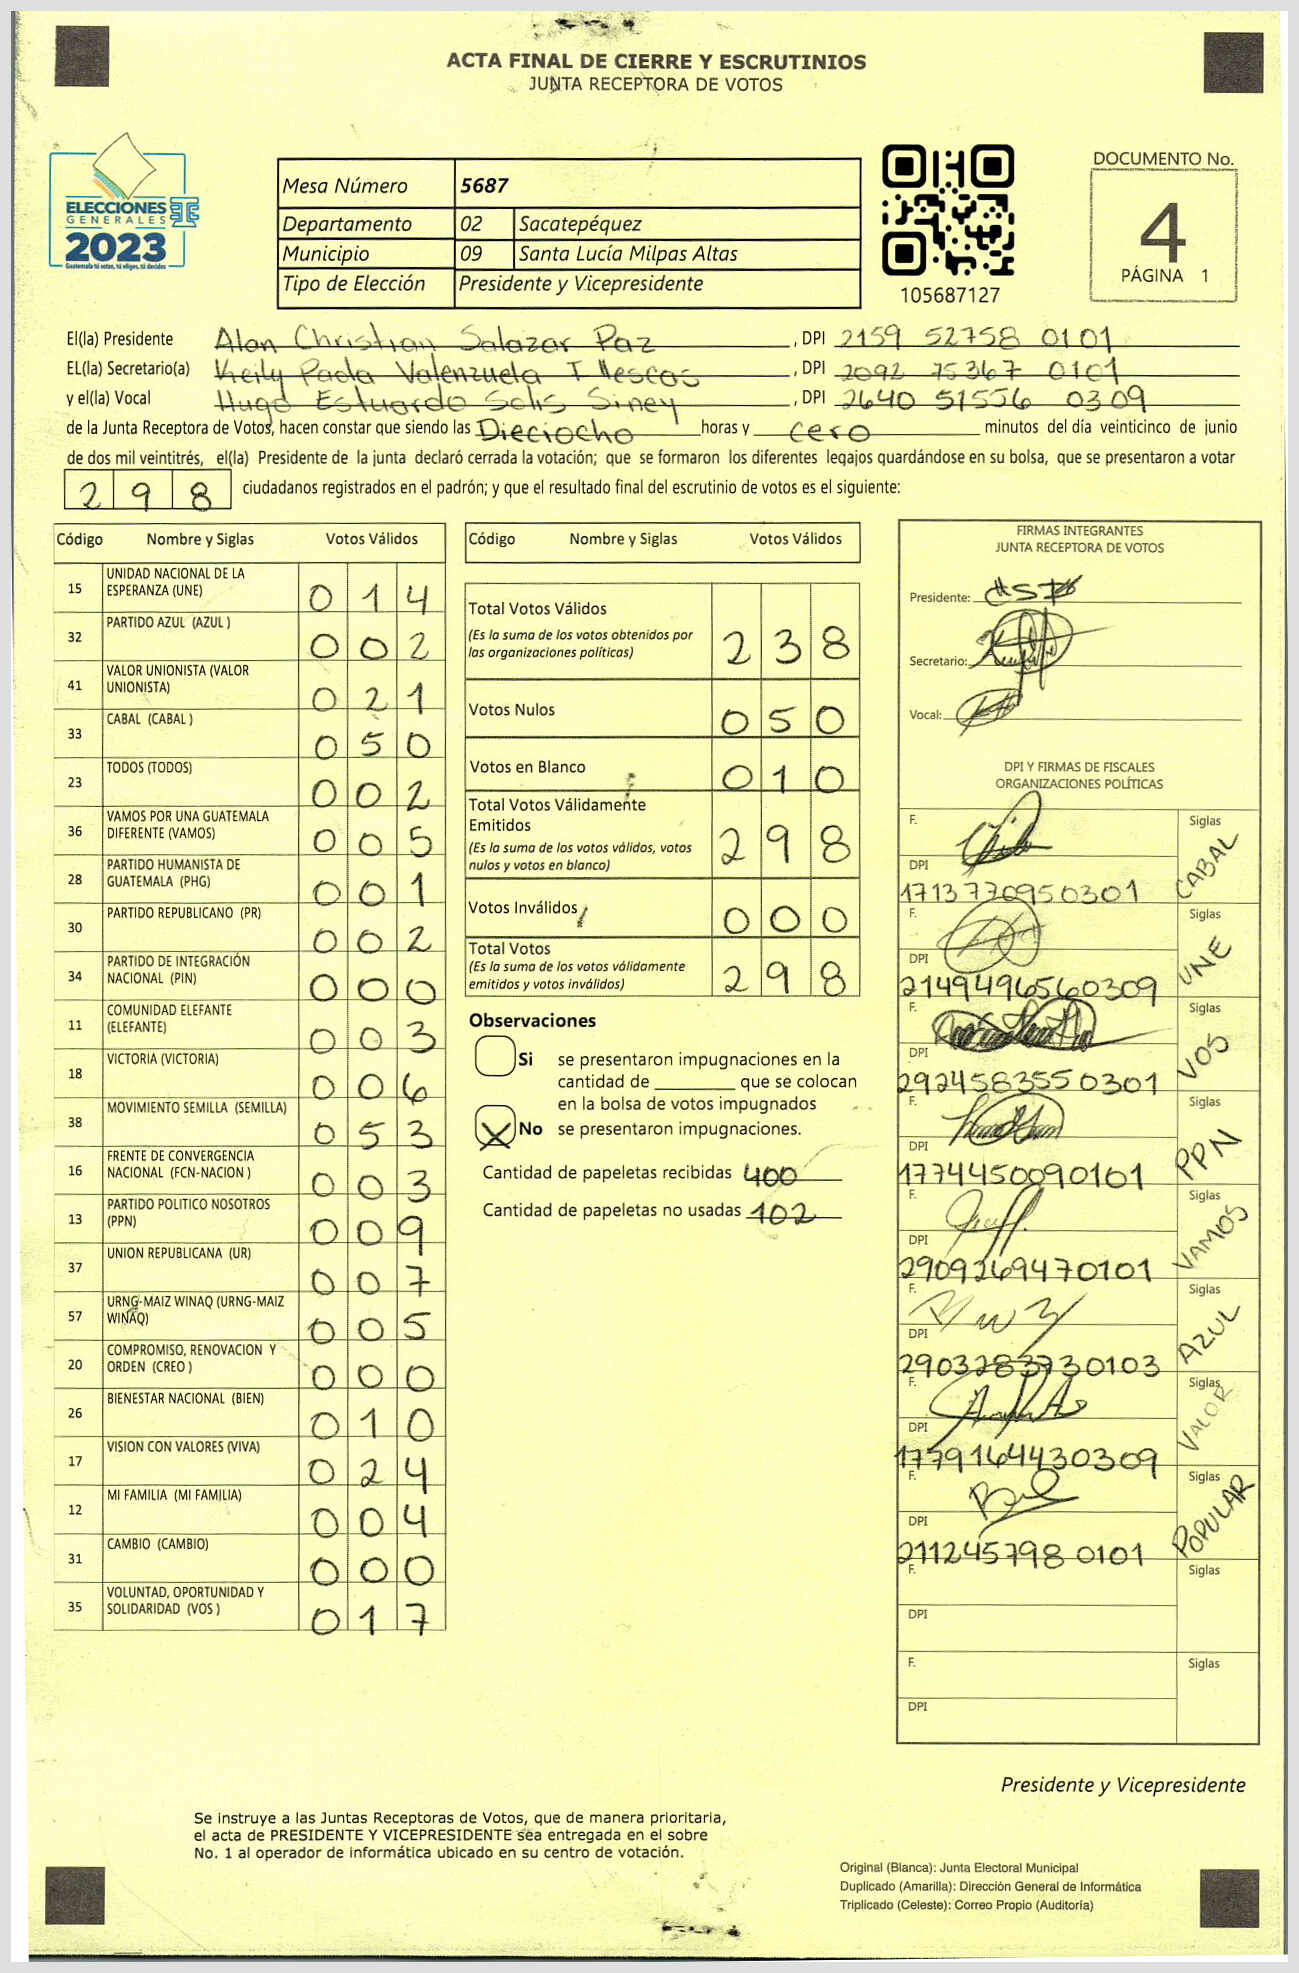 ACTA FINAL DE CIERRE Y ESCRUTINIOS
JUNTA RECEPTORA DE VOTOS
ELECCIONES
GENERALES
2023
Guatemala tú votas, tú eliges, tú decides
Mesa Número 5687
Departamento 02 Sacatepéquez
Municipio 09 Santa Lucía Milpas Altas
Tipo de Elección Presidente y Vicepresidente
105687127
DOCUMENTO No.
4
PÁGINA 1
El(la) Presidente Alan Christian Salazar Paz, DPI 2159 52758 0101
EL(la) Secretario(a) Keily Paola Valenzuela Illescas, DPI 2092 75367 0101
y el(la) Vocal Hugo Estuardo Solis Siney, DPI 2640 51556 0309
de la Junta Receptora de Votos, hacen constar que siendo las Dieciocho horas y cero minutos del día veinticinco de junio
de dos mil veintitrés, el(la) Presidente de la junta declaró cerrada la votación; que se formaron los diferentes legajos guardándose en su bolsa, que se presentaron a votar
298 ciudadanos registrados en el padrón; y que el resultado final del escrutinio de votos es el siguiente:
Código Nombre y Siglas Votos Válidos
15 UNIDAD NACIONAL DE LA ESPERANZA (UNE) 014
32 PARTIDO AZUL (AZUL ) 002
41 VALOR UNIONISTA (VALOR UNIONISTA) 021
33 CABAL (CABAL ) 050
23 TODOS (TODOS) 002
36 VAMOS POR UNA GUATEMALA DIFERENTE (VAMOS) 005
28 PARTIDO HUMANISTA DE GUATEMALA (PHG) 001
30 PARTIDO REPUBLICANO (PR) 002
34 PARTIDO DE INTEGRACIÓN NACIONAL (PIN) 000
11 COMUNIDAD ELEFANTE (ELEFANTE) 003
18 VICTORIA (VICTORIA) 006
38 MOVIMIENTO SEMILLA (SEMILLA) 053
16 FRENTE DE CONVERGENCIA NACIONAL (FCN-NACION ) 003
13 PARTIDO POLITICO NOSOTROS (PPN) 009
37 UNION REPUBLICANA (UR) 007
57 URNG-MAIZ WINAQ (URNG-MAIZ WINAQ) 005
20 COMPROMISO, RENOVACION Y ORDEN (CREO ) 000
26 BIENESTAR NACIONAL (BIEN) 010
17 VISION CON VALORES (VIVA) 024
12 MI FAMILIA (MI FAMILIA) 004
31 CAMBIO (CAMBIO) 000
35 VOLUNTAD, OPORTUNIDAD Y SOLIDARIDAD (VOS ) 017
Código Nombre y Siglas Votos Válidos
Total Votos Válidos 238
(Es la suma de los votos obtenidos por
las organizaciones políticas)
Votos Nulos 050
Votos en Blanco 010
Total Votos Válidamente
Emitidos 298
(Es la suma de los votos válidos, votos
nulos y votos en blanco)
Votos Inválidos 000
Total Votos 298
(Es la suma de los votos válidamente
emitidos y votos inválidos)
Observaciones
Si se presentaron impugnaciones en la
cantidad de ________ que se colocan
en la bolsa de votos impugnados
X No se presentaron impugnaciones.
Cantidad de papeletas recibidas 400
Cantidad de papeletas no usadas 102
FIRMAS INTEGRANTES
JUNTA RECEPTORA DE VOTOS
Presidente:
Secretario:
Vocal:
DPI Y FIRMAS DE FISCALES
ORGANIZACIONES POLÍTICAS
F. Siglas CABAL
DPI 1713770950301
F. Siglas UNE
DPI 2149496560309
F. Siglas VOS
DPI 2924583550301
F. Siglas PPN
DPI 1774450090101
F. Siglas VAMOS
DPI 2909269470101
F. Siglas AZUL
DPI 2903283730103
F. Siglas VALOR
DPI 1779164430309
F. Siglas POPULAR
DPI 211245798 0101
F. Siglas
DPI
F. Siglas
DPI
Presidente y Vicepresidente
Se instruye a las Juntas Receptoras de Votos, que de manera prioritaria,
el acta de PRESIDENTE Y VICEPRESIDENTE sea entregada en el sobre
No. 1 al operador de informática ubicado en su centro de votación.
Original (Blanca): Junta Electoral Municipal
Duplicado (Amarilla): Dirección General de Informática
Triplicado (Celeste): Correo Propio (Auditoría)